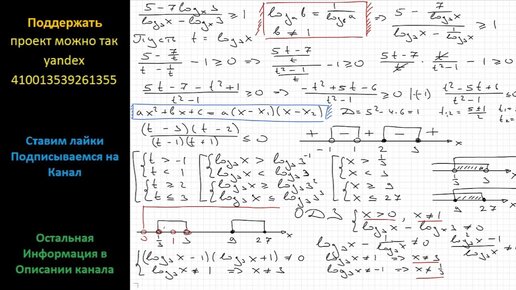 Поддержать
проект можно так
yandex
410013539261355
Ставим лайки
Подписываемся на
Канал
Остальная
Информация в
Описании канала
(5 - 7log_x 3)/(log_3 x - log_x 3) ≥ 1
log_a b = 1/(log_b a)
b ≠ 1
⇒ (5 - 7/(log_3 x))/(log_3 x - 1/(log_3 x)) ≥ 1
Пусть t = log_3 x
(5 - 7/t)/(t - 1/t) - 1 ≥ 0 ⇒ ((5t-7)/t)/((t²-1)/t) - 1 ≥ 0 (5t-7)/t · t/(t²-1) - 1 ≥ 0
(5t - 7 - t² + 1)/(t²-1) ≥ 0 ⇒ (-t² + 5t - 6)/(t²-1) ≥ 0 |·(-1) (t² - 5t + 6)/(t²-1) ≤ 0
ax² + bx + c = a(x - x₁)(x - x₂) D = 5² - 4·6 = 1 t₁,₂ = (5±1)/2
((t - 3)(t - 2))/((t - 1)(t + 1)) ≤ 0
+ - + - +
-1 1 2 3 x
t > -1
t < 1
t ≥ 2
t ≤ 3
log_3 x > log_3 3⁻¹
log_3 x < log_3 3
log_3 x ≥ log_3 3²
log_3 x ≤ log_3 3³
x > 1/3
x < 3
x ≥ 9
x ≤ 27
1/3 3 x
9 27 x
0 1/3 1 3 9 27 x
ОДЗ
x > 0, x ≠ 1
log_3 x - log_x 3 ≠ 0
log_3 x - 1/(log_3 x) ≠ 0
(log_3 x - 1)(log_3 x + 1) ≠ 0
log_3 x ≠ 1 ⇒ x ≠ 3
log_3 x ≠ 1 ⇒ x ≠ 3
log_3 x ≠ -1 ⇒ x ≠ 1/3